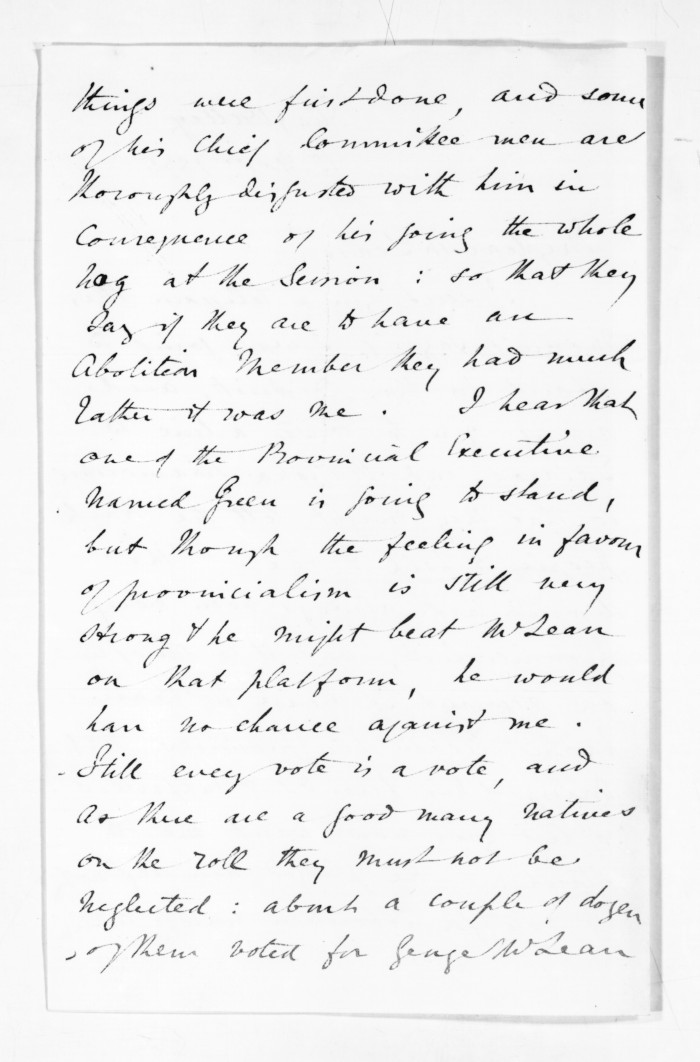 things were first done, and some
of his Chief Committee men are
thoroughly disgusted with him in
Consequence of his going the whole
hog at the Session : so that they
say if they are to have an
Abolition Member they had much
rather it was me . I hear that
one of the Provincial Executive
named Green is going to stand,
but though the feeling in favour
of provincialism is still very
strong & he might beat McLean
on that platform, he would
have no chance against me .
Still every vote is a vote, and
as there are a good many natives
on the roll they must not be
neglected : about a couple of dozen
of them voted for George McLean